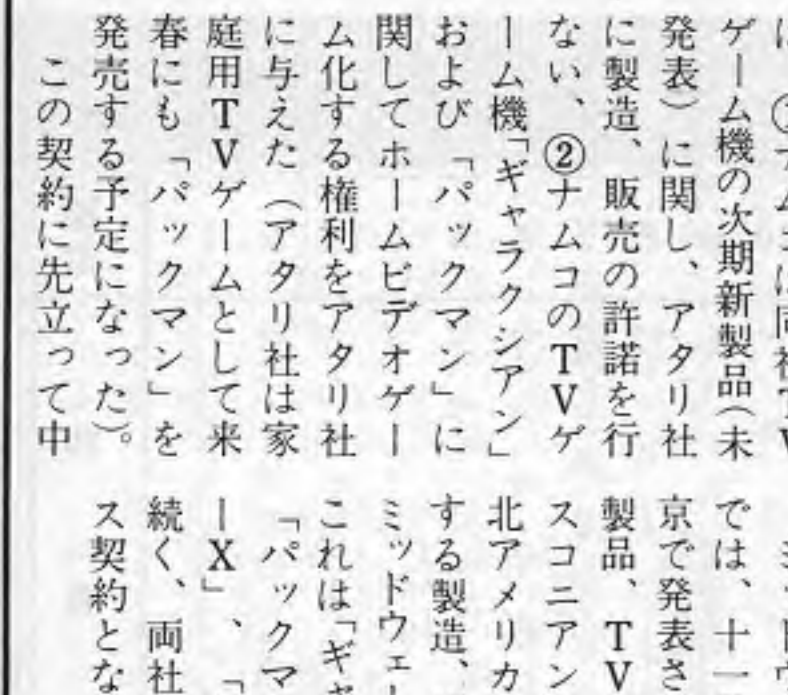 ゲーム機の次期新製品（未
発表）に関し、アタリ社
に製造、販売の許諾を行
ない、②ナムコのTVゲ
ーム機「ギャラクシアン」
および「パックマン」に
関してホームビデオゲー
ム化する権利をアタリ社
に与えた（アタリ社は家
庭用TVゲームとして来
春にも「パックマン」を
発売する予定になった）。
この契約に先立って中
では、十一
京で発表さ
製品、TV
スコニアン
北アメリカ
する製造、
ミッドウェー
これは「ギャ
「パックマ
ーX」、「
続く、両社
ス契約とな